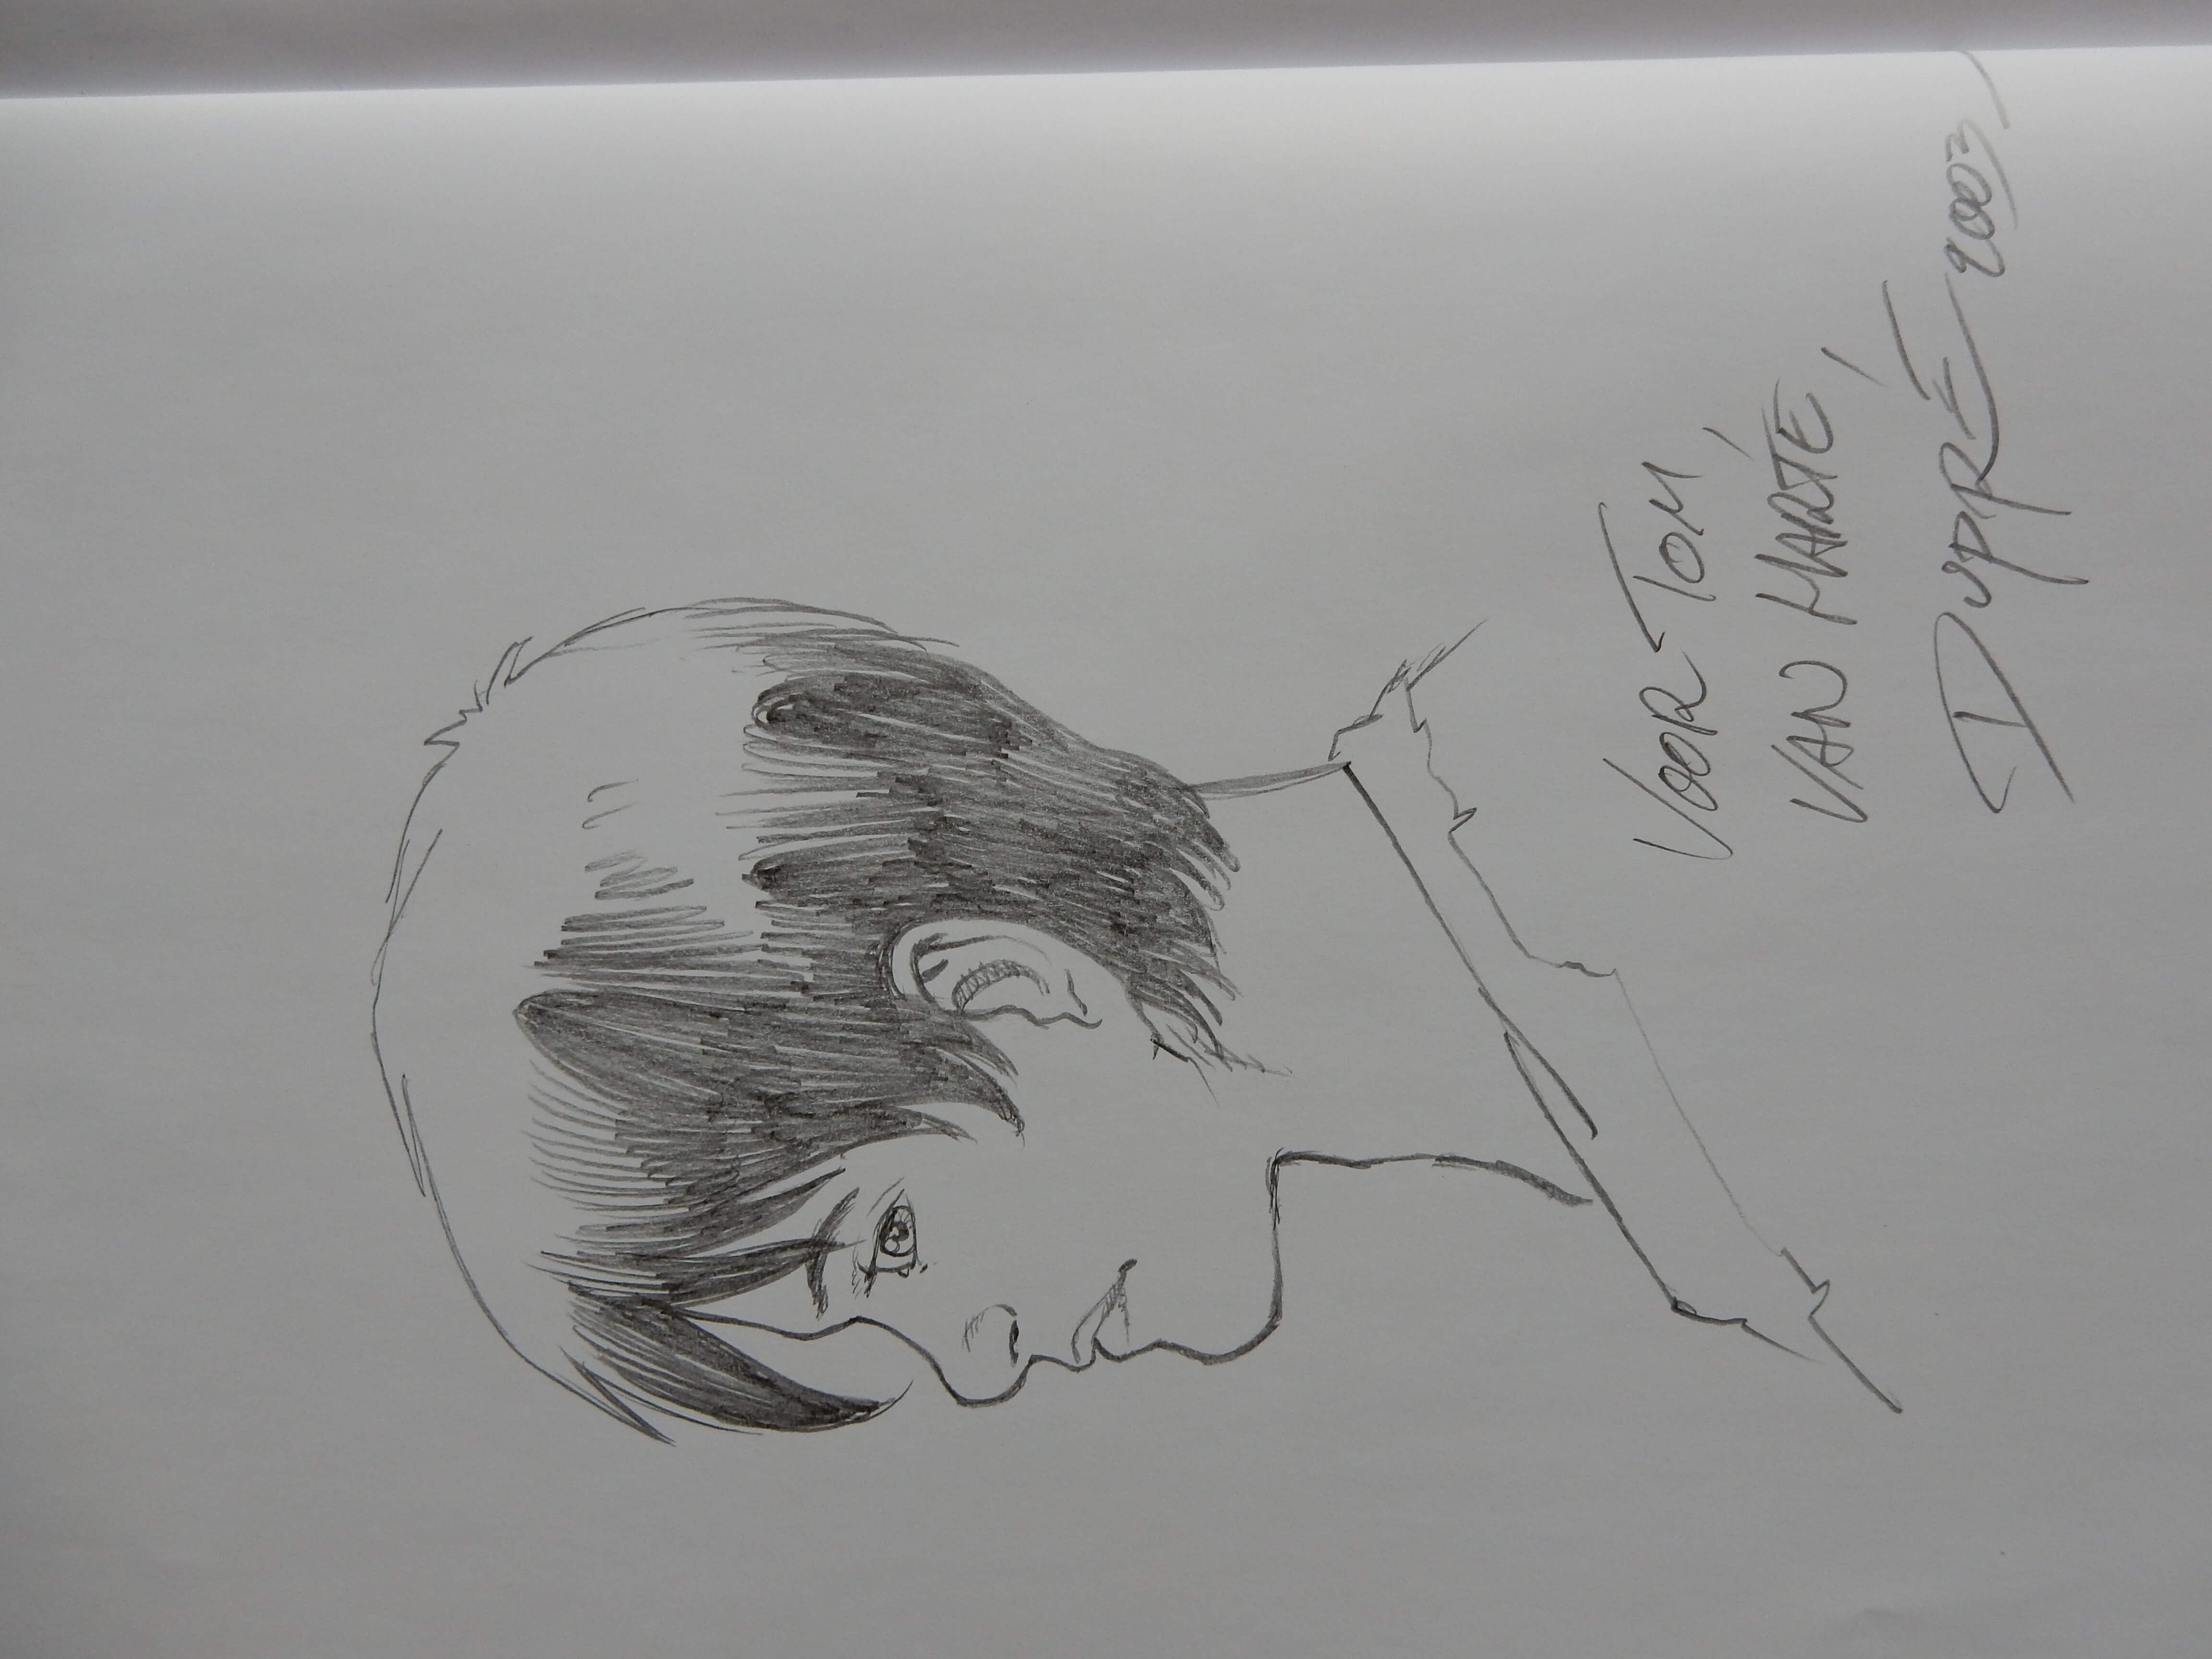 VOOR TOM,
VAN MARTE,
DUPRÉ 2003